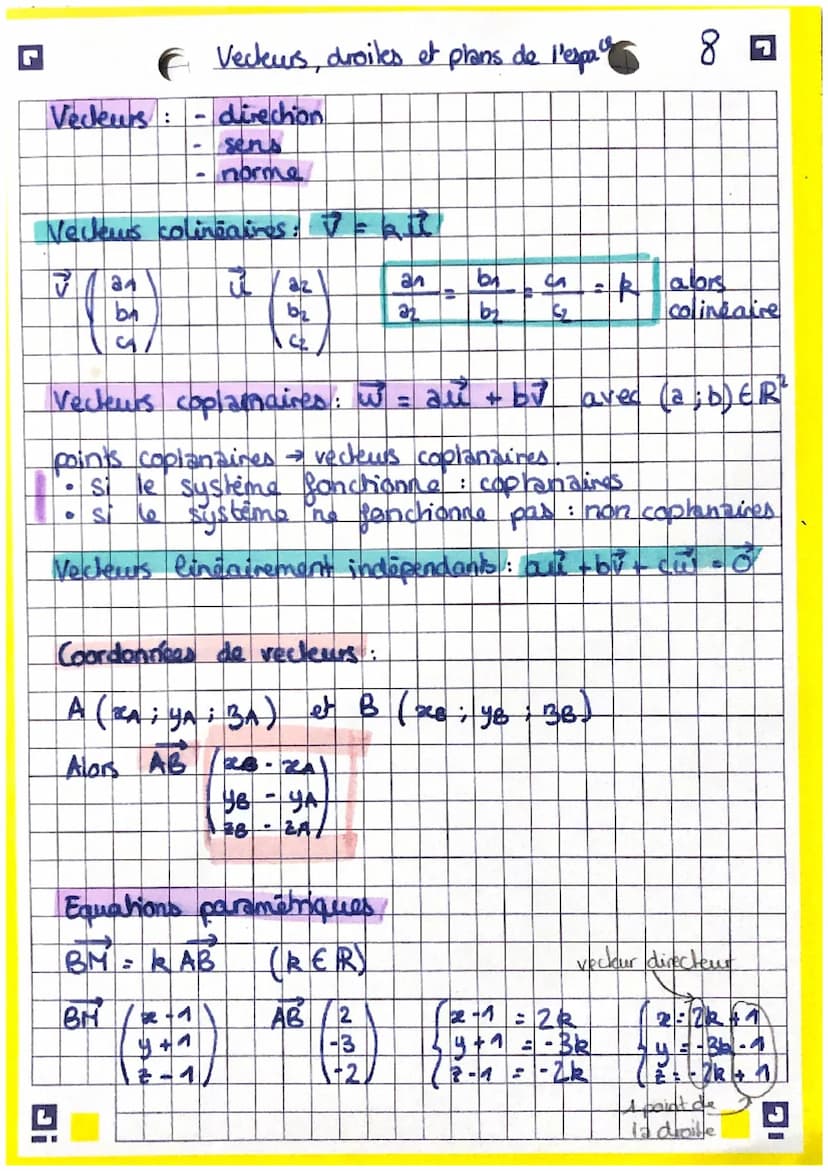 Vecteurs, droites et plans de l'espace 8
Vecteurs : - direction
- sens
- norme
Vecteurs colinéaires : v⃗ = k u⃗
v⃗ (a1 b1 c1) u⃗ (a2 b2 c2) a1/a2 = b1/b2 = c1/c2 = k alors colinéaire
Vecteurs coplanaires : w⃗ = au⃗ + bv⃗ avec (a ; b) ∈ R²
points coplanaires → vecteurs coplanaires.
• si le système fonctionne : coplanaires
• si le système ne fonctionne pas : non coplanaires
Vecteurs linéairement indépendants : au⃗ + bv⃗ + cw⃗ = 0⃗
Coordonnées de vecteurs :
A (xA ; yA ; zA) et B (xB ; yB ; zB)
Alors AB⃗ (xB - xA
yB - yA
zB - zA)
Equations paramétriques
BM⃗ = k AB⃗ (k ∈ R)
vecteur directeur
BM⃗ (x - 1 AB⃗ (2 { x - 1 = 2k { x = 2k + 1
y + 1 -3 y + 1 = -3k y = -3k - 1
z - 1) -2) z - 1 = -2k z = -2k + 1
1 point de
la droite